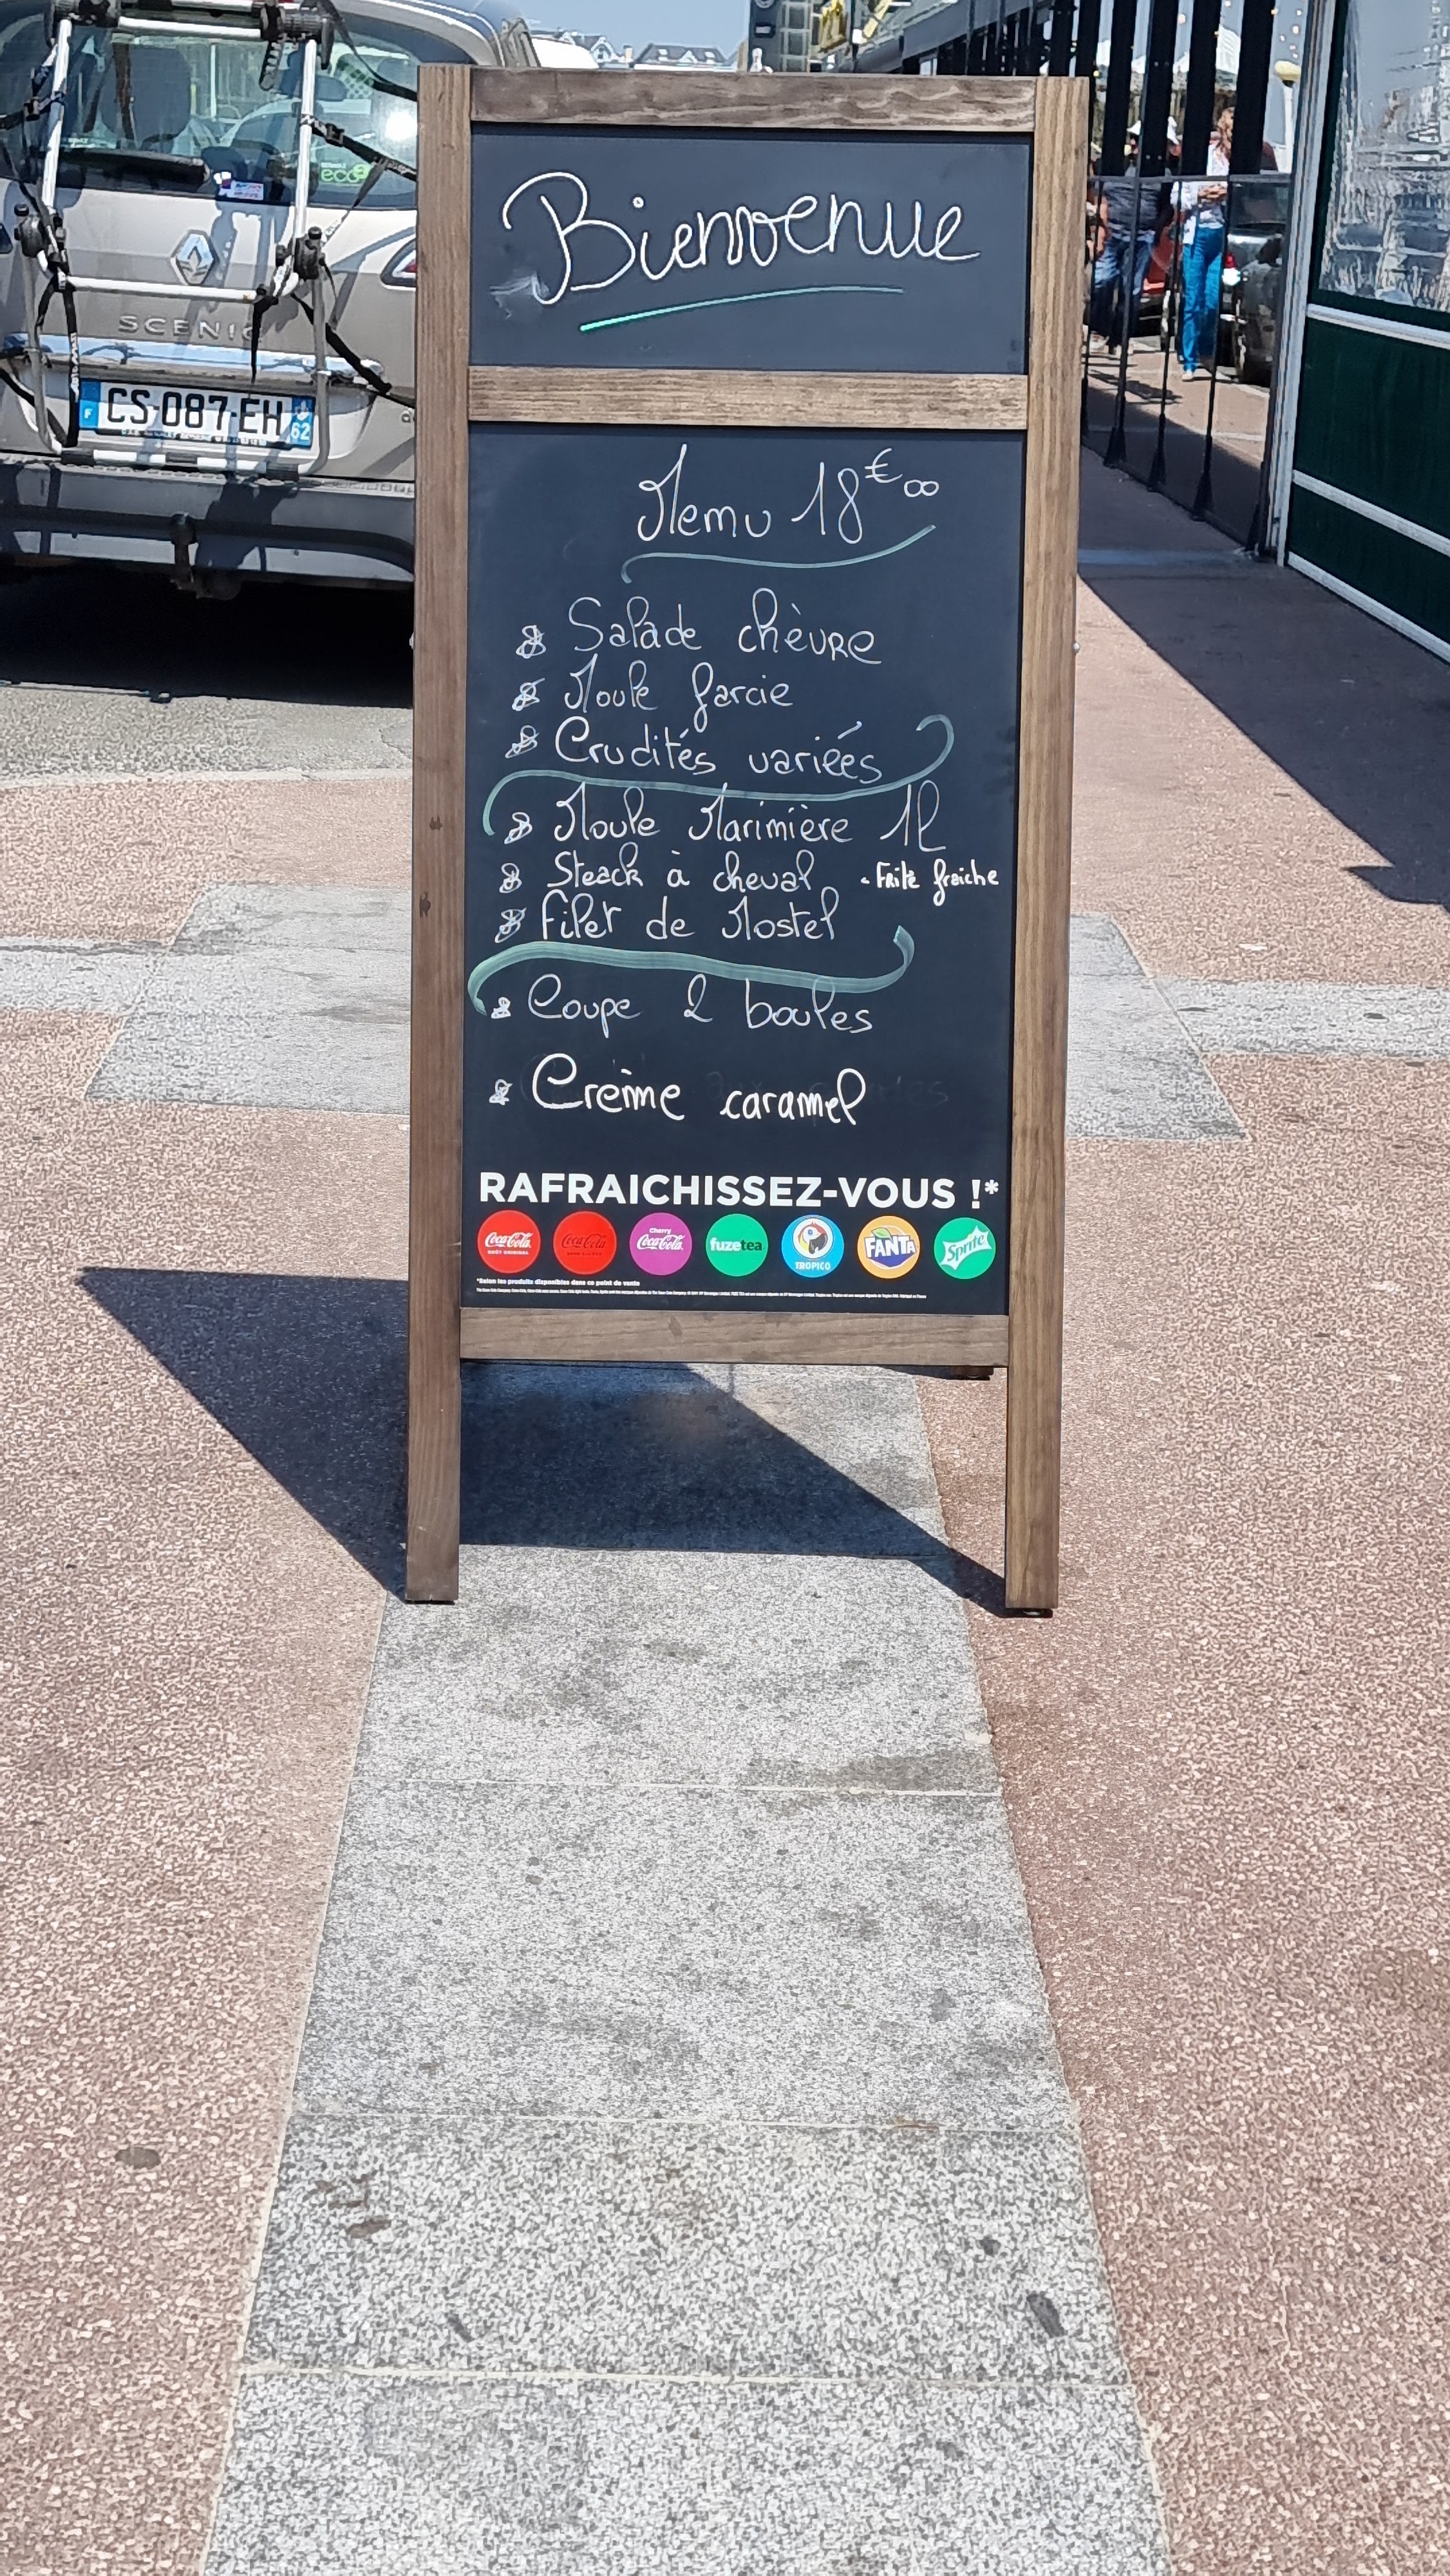 SCENIC
CS-087-EH
F
62
Bienvenue
Menu 18€00
Salade chèvre
Moule farcie
Crudités variées
Moule Marinière 1l
Steack à cheval - Frite fraiche
Filet de Mostel
Coupe 2 boules
Crème caramel
RAFRAICHISSEZ-VOUS !*
Coca-Cola GOÛT ORIGINAL
Coca-Cola
Cherry Coca-Cola
fuzetea
TROPICO
FANTA
Sprite
*Selon les produits disponibles dans ce point de vente